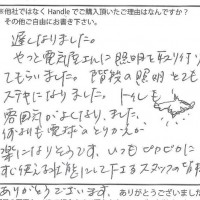 ※他社ではなくHandleでご購入頂いたご理由はなんですか？
その他ご自由にお書き下さい。
遅くなりました。
やっと電気屋さんに照明を取り付け
てもらいました。階段の照明とても
ステキになりました。トイレも
雰囲気がよくなりました。
何よりも電球のとりかえが
楽になりそうです。いつもピカピカに
すぐ使える状態にして下さるスタッフの皆様
ありがとうございます。
ありがとうございました